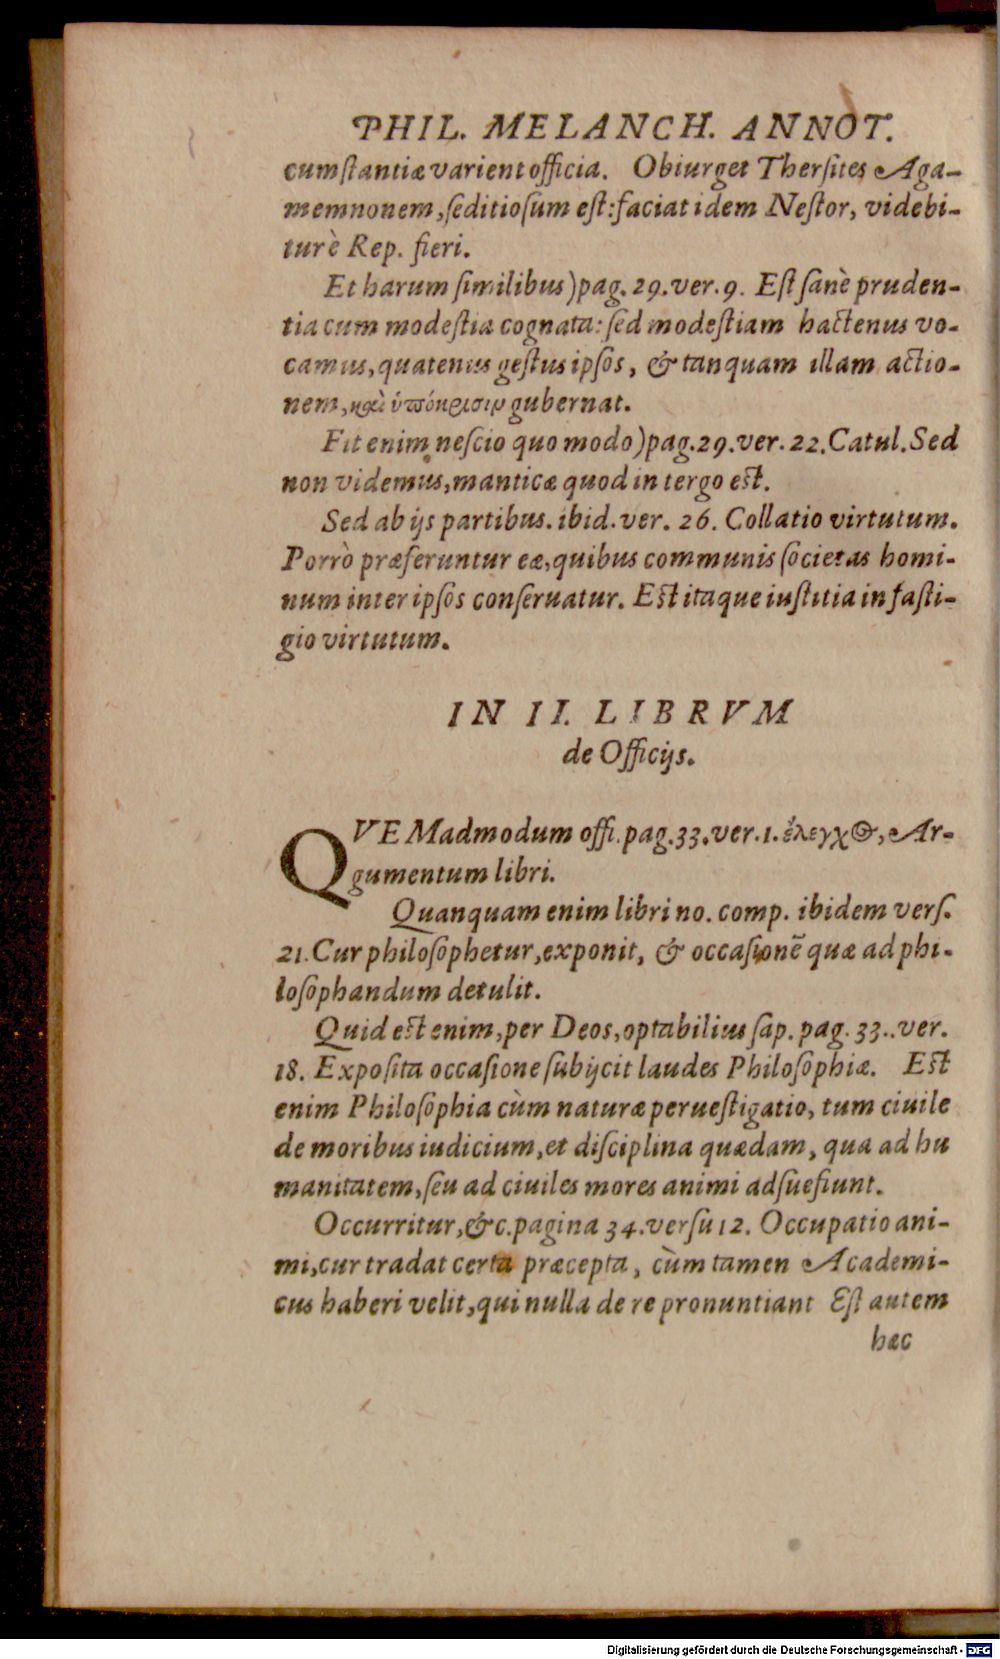 PHIL. MELANCH. ANNOT.
cumſtantiæ varient officia. Obiurget Therſites Aga-
memnonem, ſeditioſum eſt: faciat idem Neſtor, videbi-
tur è Rep. fieri.
Et harum ſimilibus) pag. 29. ver. 9. Eſt ſanè pruden-
tia cum modeſtia cognata: ſed modeſtiam hactenus vo-
camus, quatenus geſtus ipſos, & tanquam illam actio-
nem, καὶ ὑπόκρισιν gubernat.
Fit enim neſcio quo modo) pag. 29. ver. 22. Catul. Sed
non videmus, manticæ quod in tergo eſt.
Sed ab ijs partibus. ibid. ver. 26. Collatio virtutum.
Porrò præferuntur eæ, quibus communis ſocietas homi-
num inter ipſos conſeruatur. Eſt itaque iuſtitia in faſti-
gio virtutum.
IN II. LIBRVM
de Officijs.
QVEMadmodum offi. pag. 33. ver. 1. ἔλεγχος, Ar-
gumentum libri.
Quanquam enim libri no. comp. ibidem verſ.
21. Cur philoſophetur, exponit, & occaſionē quæ ad phi-
loſophandum detulit.
Quid eſt enim, per Deos, optabilius ſap. pag. 33.. ver.
18. Expoſita occaſione ſubijcit laudes Philoſophiæ. Eſt
enim Philoſophia cùm naturæ perueſtigatio, tum ciuile
de moribus iudicium, et diſciplina quædam, qua ad hu
manitatem, ſeu ad ciuiles mores animi adſuefiunt.
Occurritur, &c. pagina 34. verſu 12. Occupatio ani-
mi, cur tradat certa præcepta, cùm tamen Academi-
cus haberi velit, qui nulla de re pronuntiant Eſt autem
hæc
Digitalisierung gefördert durch die Deutsche Forschungsgemeinschaft - DFG